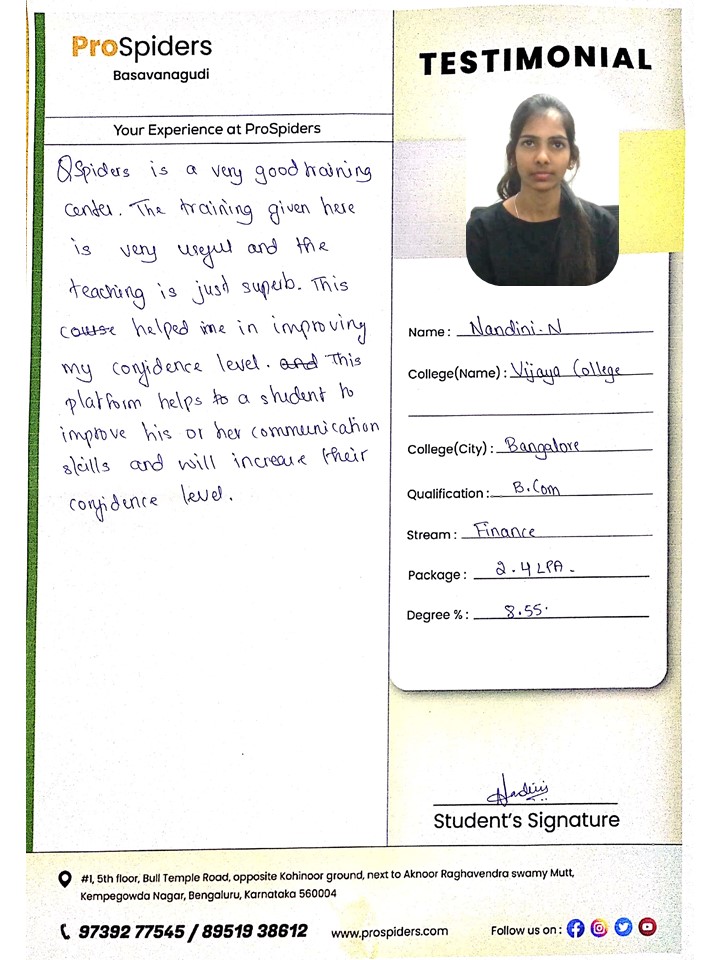 ProSpiders
Basavanagudi
Your Experience at ProSpiders
QSpiders is a very good training
center. The training given here
is very useful and the
teaching is just superb. This
course helped me in improving
my confidence level. and This
platform helps to a student to
improve his or her communication
skills and will increase their
confidence level.
TESTIMONIAL
Name: Nandini. N
College(Name): Vijaya College
College(City): Bangalore
Qualification: B.Com
Stream: Finance
Package: 2.4 LPA.
Degree %: 8.55.
Student's Signature
#1, 5th floor, Bull Temple Road, opposite Kohinoor ground, next to Aknoor Raghavendra swamy Mutt,
Kempegowda Nagar, Bengaluru, Karnataka 560004
97392 77545 / 89519 38612
www.prospiders.com
Follow us on: